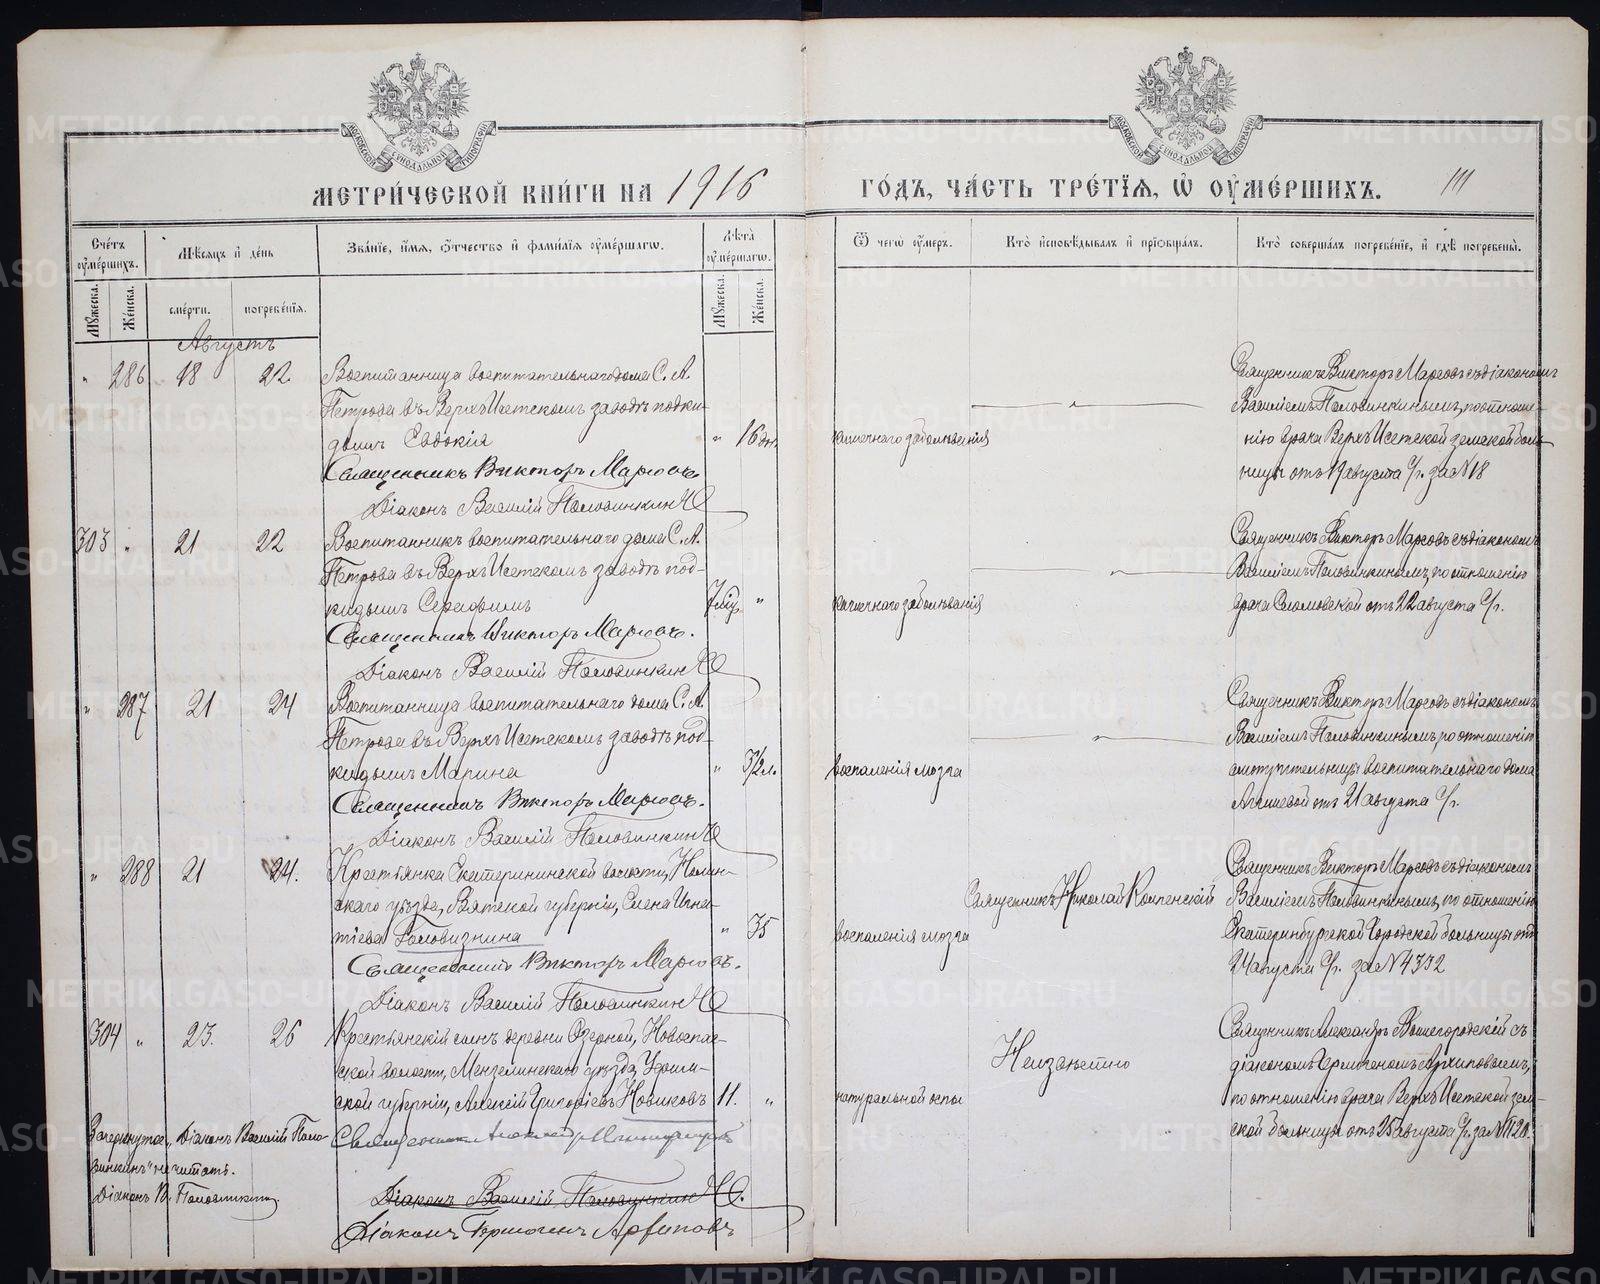 МЕТРИ́ЧЕСКОЙ КНИ́ГИ НА 1916
ГО́ДЪ, ЧА́СТЬ ТРЕ́ТЇѦ, Ѡ҆ ОУ҆МЕ́РШИХЪ. 111
Сче́тъ оу҆ме́ршихъ.
Мѣ́сѧцъ и҆ де́нь
Зва́нїе, и҆́мѧ, ѻ҆́тчество и҆ фами́лїѧ оу҆ме́ршагѡ.
Лѣ́та оу҆ме́ршагѡ.
Ѿ чегѡ̀ оу҆́меръ.
Кто̀ и҆сповѣ́дывалъ и҆ прїѡбща́лъ.
Кто̀ соверша́лъ погребе́нїе, и҆ гдѣ̀ погребены̀.
Мꙋ́жеска.
Же́нска.
сме́рти.
погребе́нїѧ.
Мꙋ́жеска.
Же́нска.
Августъ
" 286 18 22
Воспитанница воспитательнаго дома С. А.
Петрова въ Верхъ-Исетскомъ заводѣ подки-
дышъ Евдокія " 16 дн.
Священникъ Викторъ Марковъ
Діаконъ Василій Половинкинъ
кишечнаго заболѣванія
Священникъ Викторъ Марковъ съ діакономъ
Василіемъ Половинкинымъ, по отноше-
нію врача Верхъ Исетской земской боль-
ницы отъ 19 августа с/г. за № 18
303 " 21 22
Воспитанникъ воспитательнаго дома С. А.
Петрова въ Верхъ Исетскомъ заводѣ под-
кидышъ Серафимъ "
Священникъ Викторъ Марковъ.
Діаконъ Василій Половинкинъ
кишечнаго заболѣванія
Священникъ Викторъ Марковъ съ діакономъ
Василіемъ Половинкинымъ, по отношенію
врача отъ 22 августа с/г.
" 287 21 24
Воспитанница воспитательнаго дома С. А.
Петрова въ Верхъ Исетскомъ заводѣ под-
кидышъ Марина "
Священникъ Викторъ Марковъ.
Діаконъ Василій Половинкинъ
воспаленія мозга
Священникъ Викторъ Марковъ съ діакономъ
Василіемъ Половинкинымъ, по отношенію
воспитательнаго дома
отъ 21 августа с/г.
" 288 21 24.
Крестьянка Екатерининской волости, Нолин-
скаго уѣзда, Вятской губерніи, Елена Игна-
тіева Головизнина " 35
Священникъ Викторъ Марковъ.
Діаконъ Василій Половинкинъ
воспаленія мозга
Священникъ Николай
Священникъ Викторъ Марковъ съ діакономъ
Василіемъ Половинкинымъ, по отношенію
Екатеринбургской Городской больницы отъ
24 августа с/г. за № 4332
304 " 23. 26
Крестьянскій сынъ деревни Озерной, Новоспас-
ской волости, Мензелинскаго уѣзда, Уфим-
ской губерніи, Алексій Григорьевъ Новиковъ 11. "
Священникъ Александръ
Діаконъ Василій Половинкинъ.
Діаконъ Ермогенъ Архиповъ
натуральной оспы
Неизвѣстно
Священникъ Александръ Вышегородскій съ
діакономъ Ермогеномъ Архиповымъ,
по отношенію врача Верхъ Исетской зем-
ской больницы отъ 25 августа с/г. за № 1120.
Зачеркнутое „Діаконъ Василій Поло-
винкинъ" не читать.
Діаконъ В. Половинкинъ.